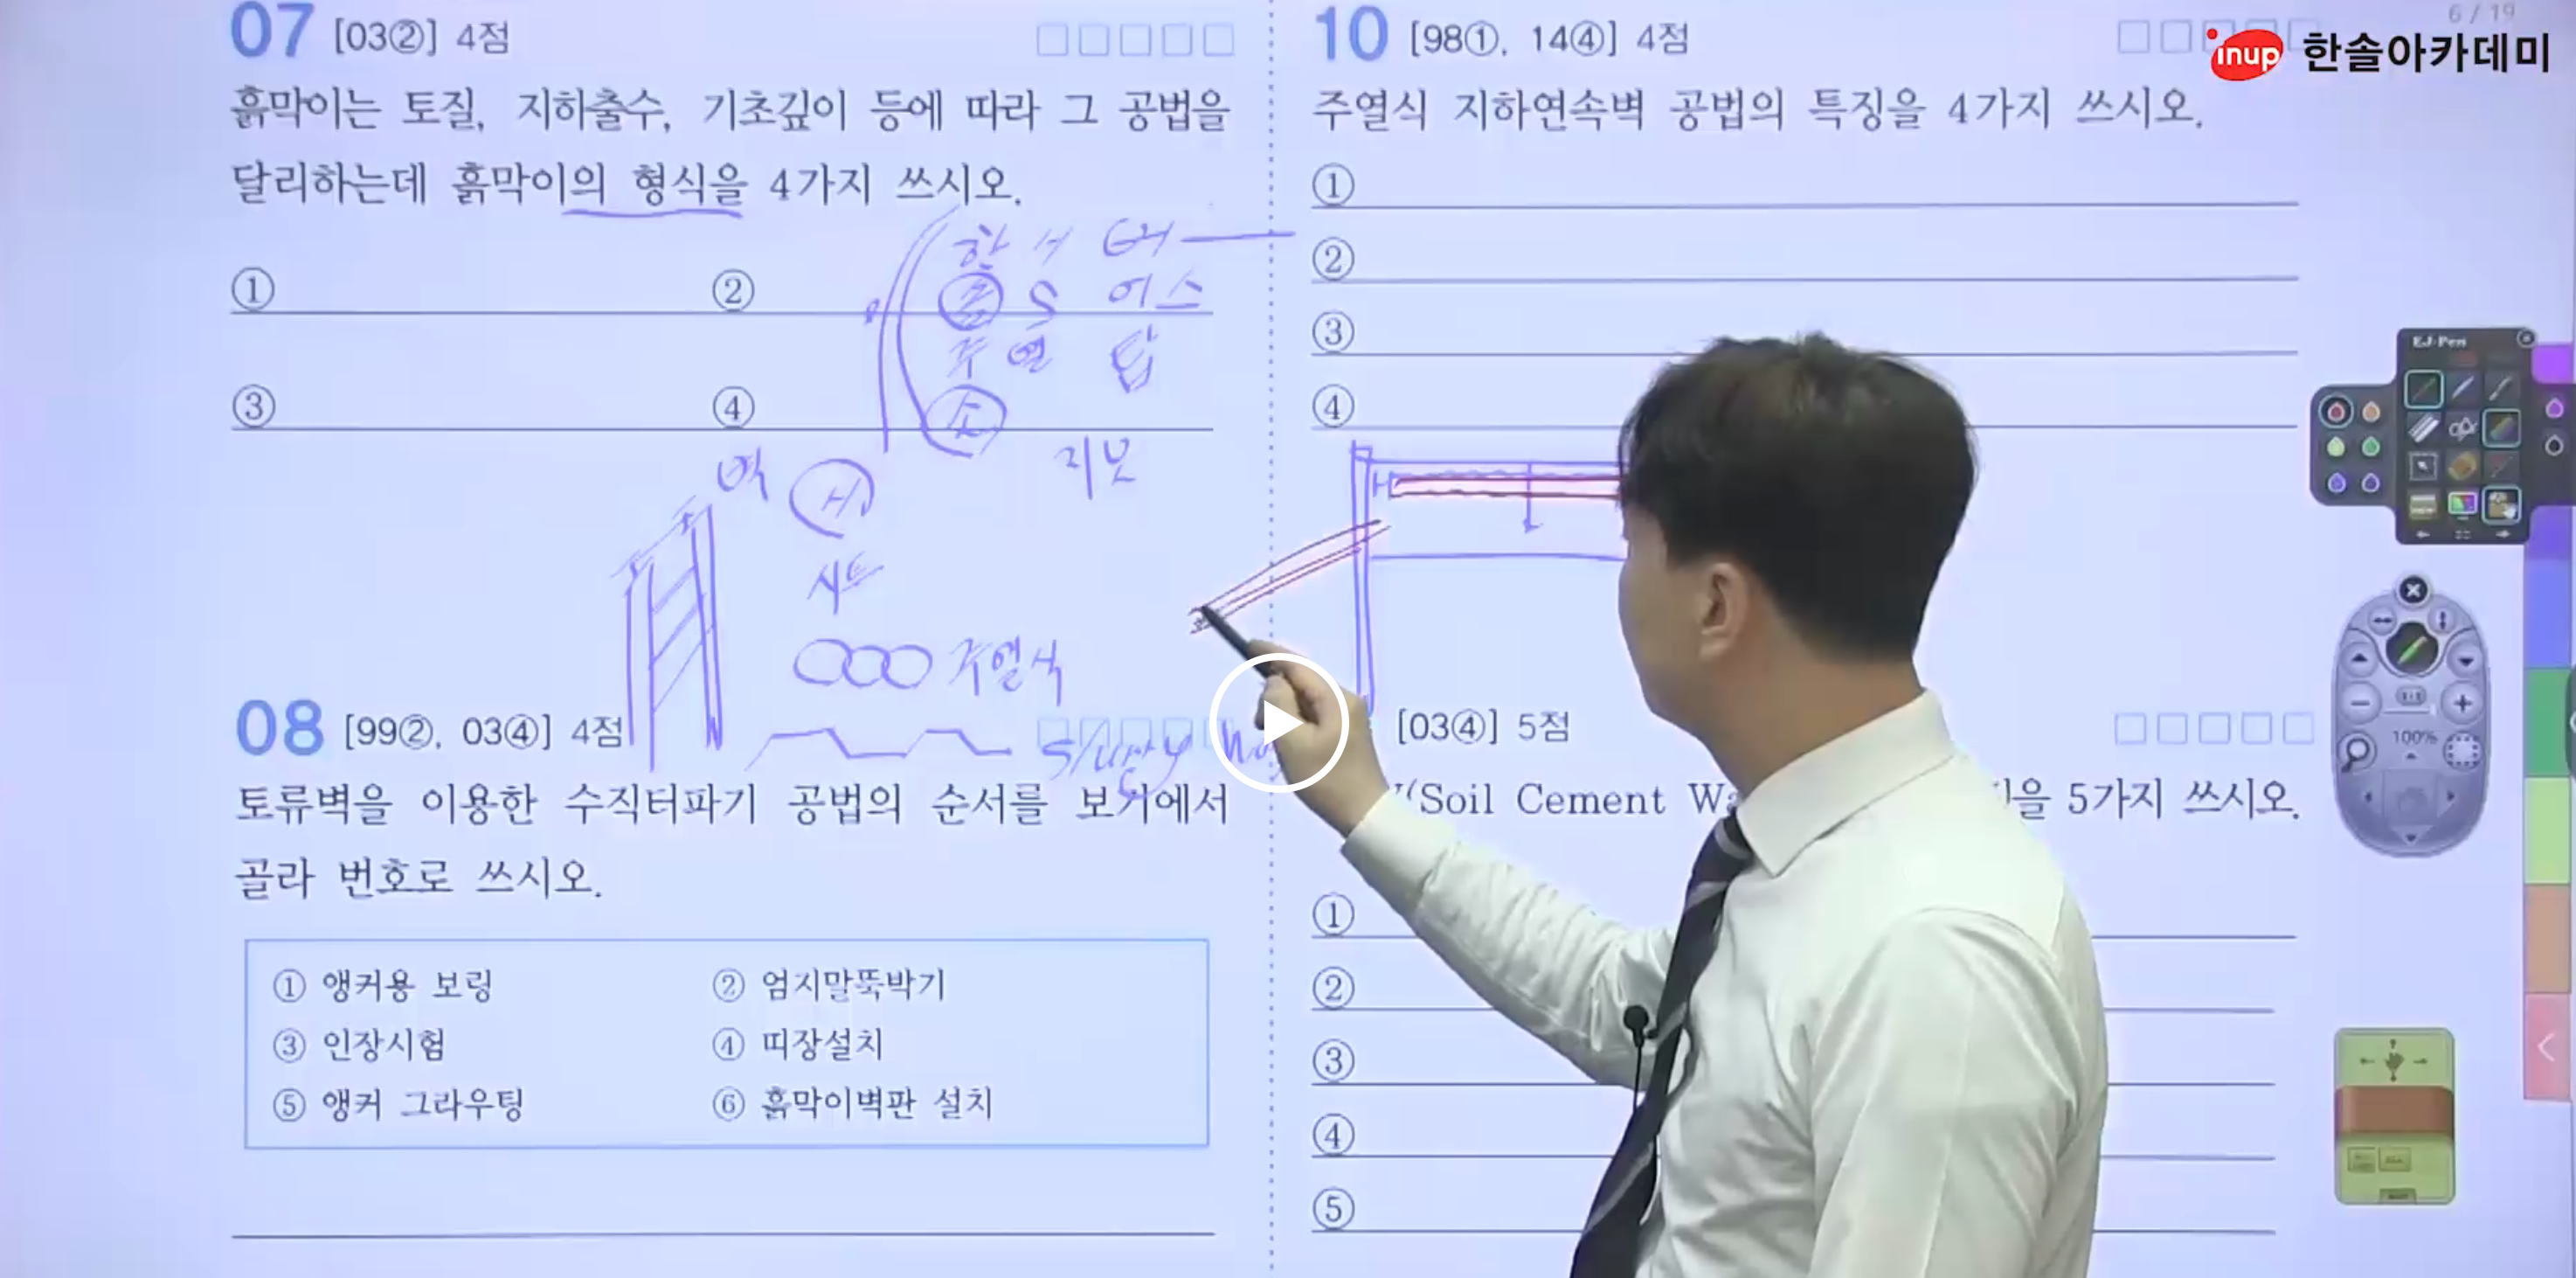 07 [03②] 4점
흙막이는 토질, 지하출수, 기초깊이 등에 따라 그 공법을
달리하는데 흙막이의 형식을 4가지 쓰시오.
①
②
③
④
어스
주열
지보
벽
시트
주열식
08 [99②, 03④] 4점
토류벽을 이용한 수직터파기 공법의 순서를 보기에서
골라 번호로 쓰시오.
① 앵커용 보링
② 엄지말뚝박기
③ 인장시험
④ 띠장설치
⑤ 앵커 그라우팅
⑥ 흙막이벽판 설치
6 / 19
inup 한솔아카데미
10 [98①, 14④] 4점
주열식 지하연속벽 공법의 특징을 4가지 쓰시오.
①
②
③
④
[03④] 5점
(Soil Cement 을 5가지 쓰시오.
①
②
③
④
⑤
EJ-Pen
100%